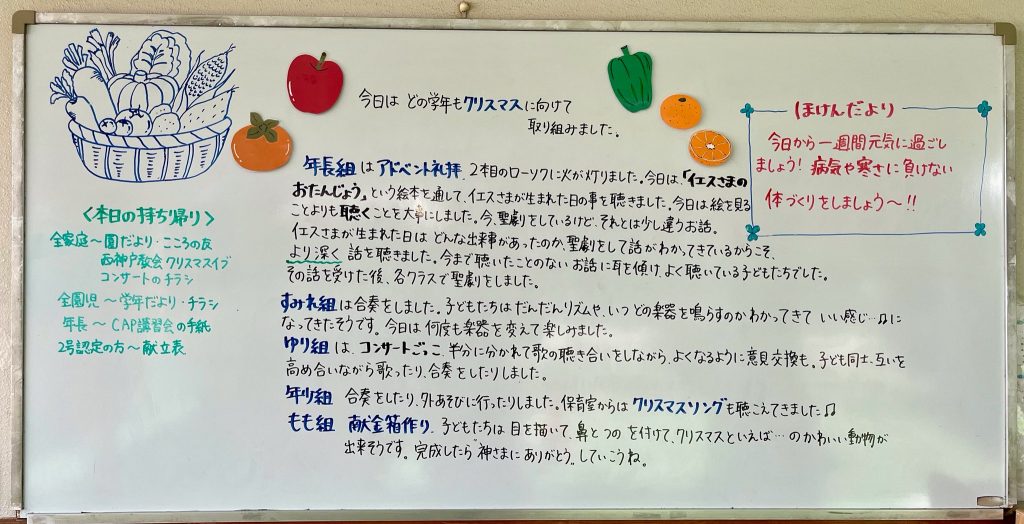 今日は どの学年もクリスマスに向けて
取り組みました。
年長組はアドベント礼拝。2本目のローソクに火が灯りました。今日は、「イエスさまの
おたんじょう」という絵本を通して、イエスさまが生まれた日の事を聴きました。今日は絵を見る
ことよりも聴くことを大事にしました。今、聖劇をしているけど、それとは少し違うお話。
イエスさまが生まれた日は どんな出来事があったのか、聖劇をして話がわかってきているからこそ、
より深く 話を聴きました。今まで聴いたことのないお話に耳を傾け、よく聴いている子どもたちでした。
その話を受けた後、各クラスで聖劇をしました。
すみれ組は合奏をしました。子どもたちは だんだんリズムや、いつ どの楽器を鳴らすのか わかってきて いい感じ…♫に
なってきたそうです。今日は何度も楽器を変えて楽しみました。
ゆり組は、コンサートごっこ。半分に分かれて歌の聴き合いをしながら、よくなるように意見交換も。子ども同士、互いを
高め合いながら歌ったり、合奏をしたりしました。
年少組 合奏をしたり、外あそびに行ったりしました。保育室からはクリスマスソングも聴こえてきました♫
もも組 献金箱作り。子どもたちは 目を描いて、鼻と つの を付けて、クリスマスといえば…のかわいい動物が
出来そうです。完成したら"神さまにありがとう"していこうね。
ほけんだより
今日から一週間元気に過ごし
ましょう！病気や寒さに負けない
体づくりをしましょう〜!!
〈本日の持ち帰り〉
全家庭〜園だより・こころの友
西神戸教会クリスマスイブ
コンサートのチラシ
全園児〜学年だより・チラシ
年長〜CAP講習会の手紙
2号認定の方〜献立表